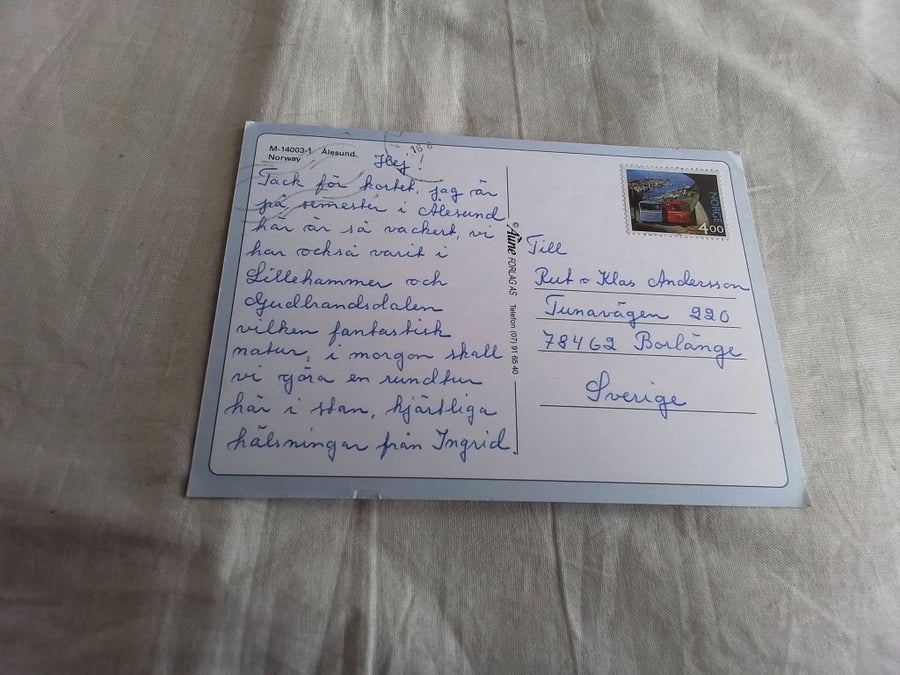 M-14003-1 Ålesund.
Norway
16 6
Hej!
Tack för kortet, jag är
på semester i Ålesund
här är så vackert, vi
har också varit i
Lillehammer och
Gudbrandsdalen
vilken fantastisk
natur, i morgon skall
vi göra en rundtur
här i stan, hjärtliga
hälsningar från Ingrid.
© Aune FORLAG AS Telefon (07) 91 65 40
NORGE
4.00
Till
Rut o Klas Andersson
Tunavägen 220
78462 Borlänge
Sverige